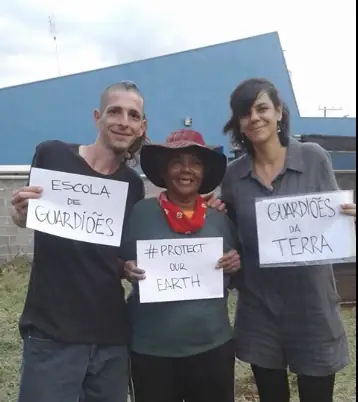 ESCOLA
DE
GUARDIÕES
#PROTECT
OUR
EARTH
GUARDIÕES
DA
TERRA